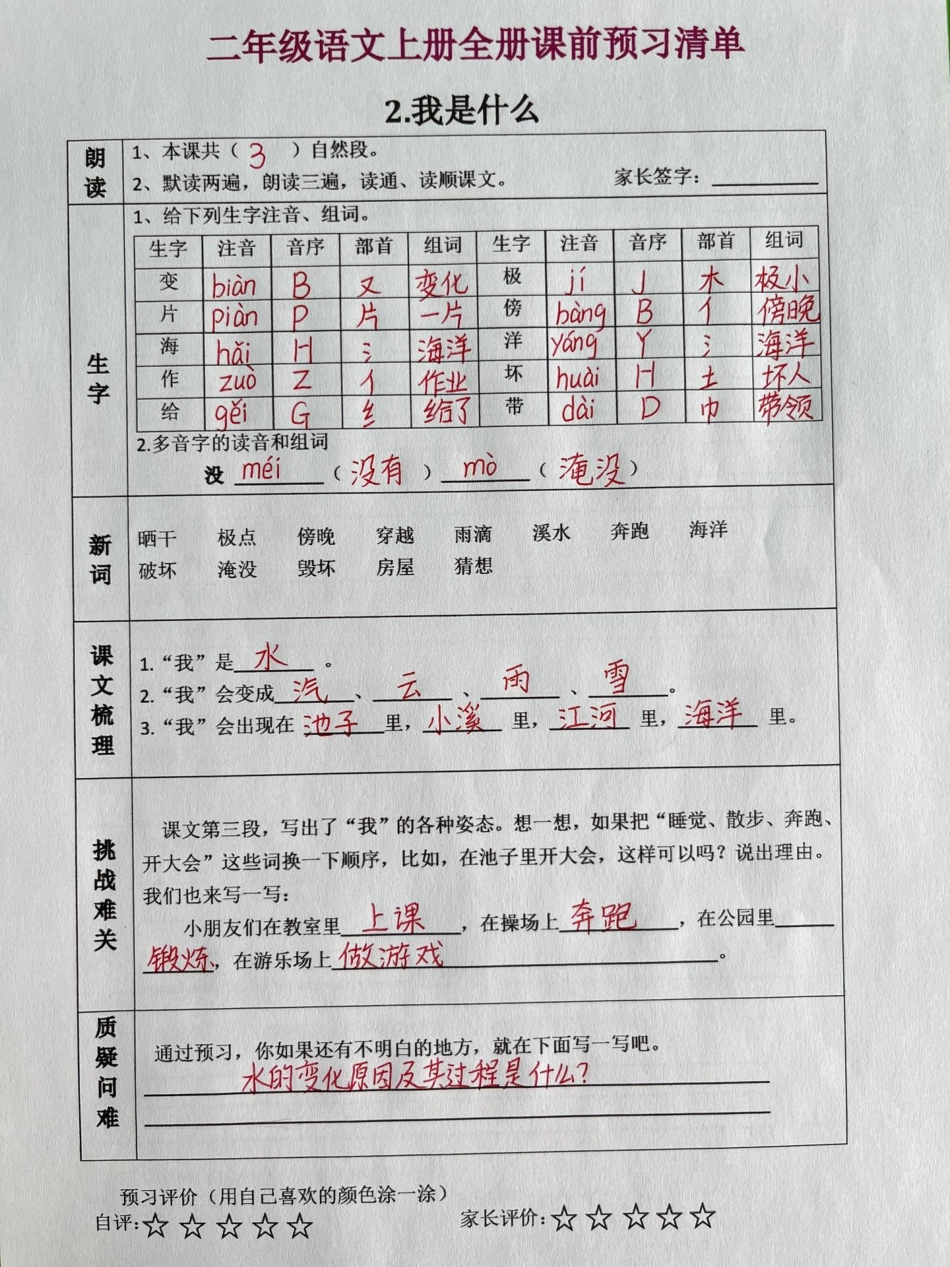 二年级语文上册全册课前预习清单
2.我是什么
朗读
1、本课共（ 3 ）自然段。
2、默读两遍，朗读三遍，读通、读顺课文。 家长签字：________
生字
1、给下列生字注音、组词。
生字 注音 音序 部首 组词 生字 注音 音序 部首 组词
变 biàn B 又 变化 极 jí J 木 极小
片 piàn P 片 一片 傍 bàng B 亻 傍晚
海 hǎi H 氵 海洋 洋 yáng Y 氵 海洋
作 zuò Z 亻 作业 坏 huài H 土 坏人
给 gěi G 纟 给了 带 dài D 巾 带领
2.多音字的读音和组词
没 méi （ 没有 ） mò （ 淹没 ）
新词
晒干 极点 傍晚 穿越 雨滴 溪水 奔跑 海洋
破坏 淹没 毁坏 房屋 猜想
课文梳理
1.“我”是 水 。
2.“我”会变成 汽 、 云 、 雨 、 雪 。
3.“我”会出现在 池子 里， 小溪 里， 江河 里， 海洋 里。
挑战难关
课文第三段，写出了“我”的各种姿态。想一想，如果把“睡觉、散步、奔跑、
开大会”这些词换一下顺序，比如，在池子里开大会，这样可以吗？说出理由。
我们也来写一写：
小朋友们在教室里 上课 ，在操场上 奔跑 ，在公园里
锻炼 ，在游乐场上 做游戏 。
质疑问难
通过预习，你如果还有不明白的地方，就在下面写一写吧。
水的变化原因及其过程是什么？
预习评价（用自己喜欢的颜色涂一涂）
自评：☆ ☆ ☆ ☆ ☆ 家长评价：☆ ☆ ☆ ☆ ☆